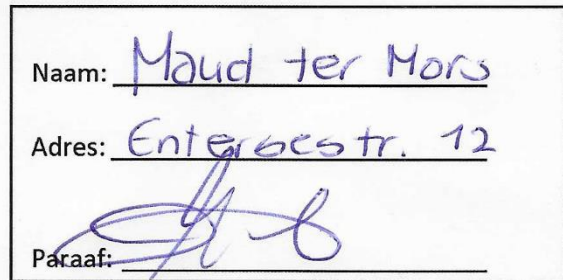 Naam: Maud ter Mors
Adres: Entersestr. 12
Paraaf: